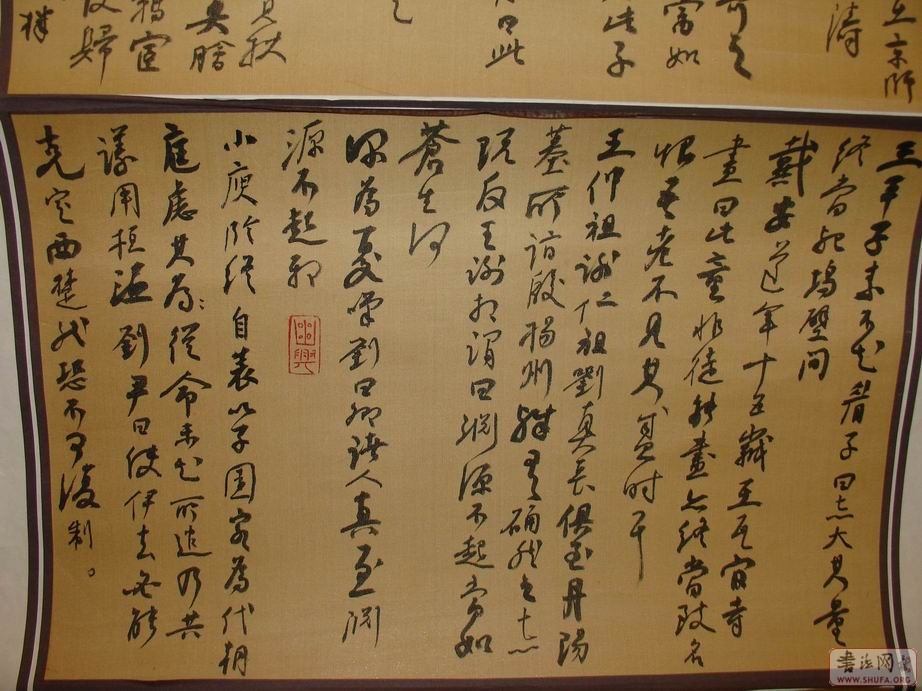 京師
濤
之
當如
此子
曰此
之
歸
王平子素不知眉子曰志大其量
終當死塢壁間
戴安道年十五歲在瓦官寺
畫曰此童非徒能畫亦終當致名
恨吾老不見其盛时耳
王仲祖謝仁祖劉真長俱至丹陽
墓所詣殷揚州殊有確然之志
既反王謝相謂曰淵源不起當如
蒼生何
深為憂嘆劉曰卿諸人真憂淵
源不起邪
小庾臨終自表以子園客為代朝
庭慮其不從命未知所遣乃共
議用桓溫劉尹曰使伊去必能
克定西楚然恐不可復制。
書法网
WWW.SHUFA.ORG